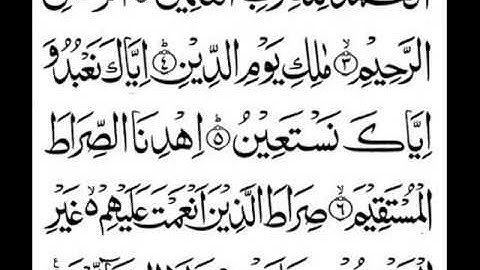 الرَّحِيْمِ ۙ﴿۳﴾ مٰلِكِ يَوْمِ الدِّيْنِ ؕ﴿۴﴾ اِيَّاكَ نَعْبُدُ وَ
اِيَّاكَ نَسْتَعِيْنُ ؕ﴿۵﴾ اِهْدِنَا الصِّرَاطَ
الْمُسْتَقِيْمَ ۙ﴿۶﴾ صِرَاطَ الَّذِيْنَ اَنْعَمْتَ عَلَيْهِمْ ۙ۬ غَيْرِ